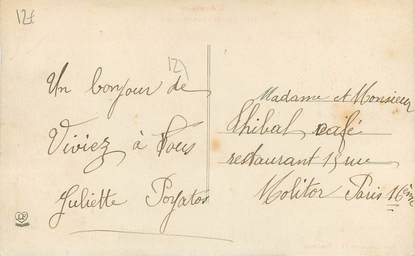 12€
12
Un bonjour de
Viviez à Tous
Juliette Poyatos
Madame et Monsieur
Thibal café
restaurant 15 rue
Molitor Paris 16ème